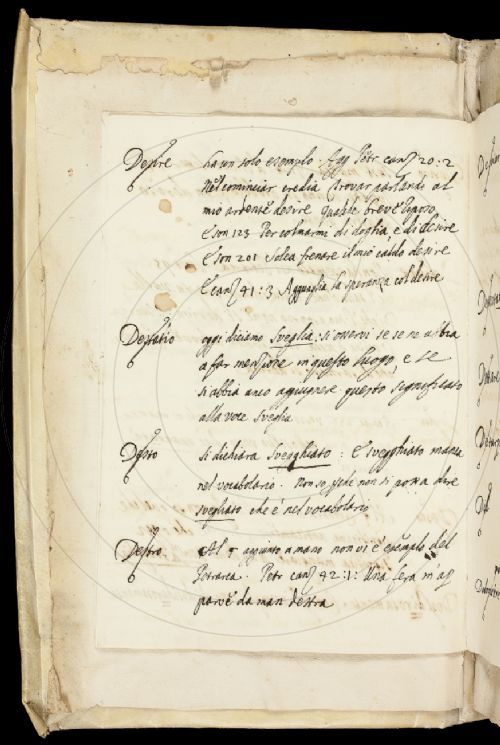 Desire ha un solo esempio. Agg. Petr. canz. 20:2
Nel cominciar credia trovar parlando al
mio ardente desire qualche breve riposo
E son 123 Per colmarmi di doglia, e di desire
E son 201 Solea frenare il mio caldo desire
E canz. 41:3 Agguaglia la speranza col desire
Destatio oggi diciamo Sveglia: si osservi se se ne abbia
a far menzione in questo luogo, e se
si abbia anco aggiugnere questo significato
alla voce Sveglia
Desto si dichiara Svegghiato: E svegghiato manca
nel vocabolario. Non so perche non si possa dire
svegliato che è nel vocabolario
Destro Al § aggiunto a mano non vi è esempio del
Petrarca. Petr. canz. 42:1: Una fera m'ap
parve da man destra